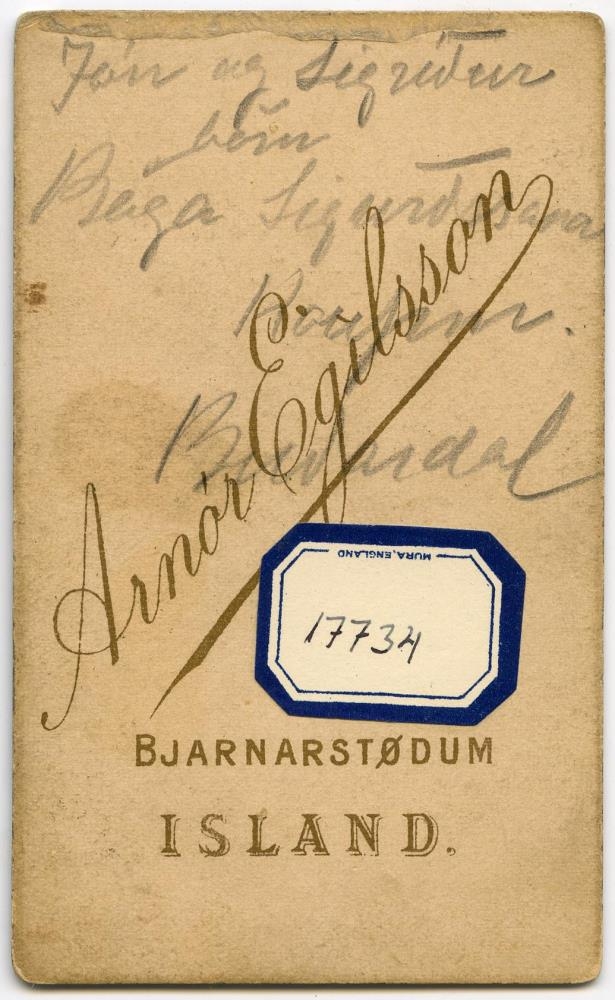 Jón og Sigríður
börn
Baga Sigurðssonar
Arnór Egilsson
MURA, ENGLAND
17734
BJARNARSTØDUM
ISLAND.